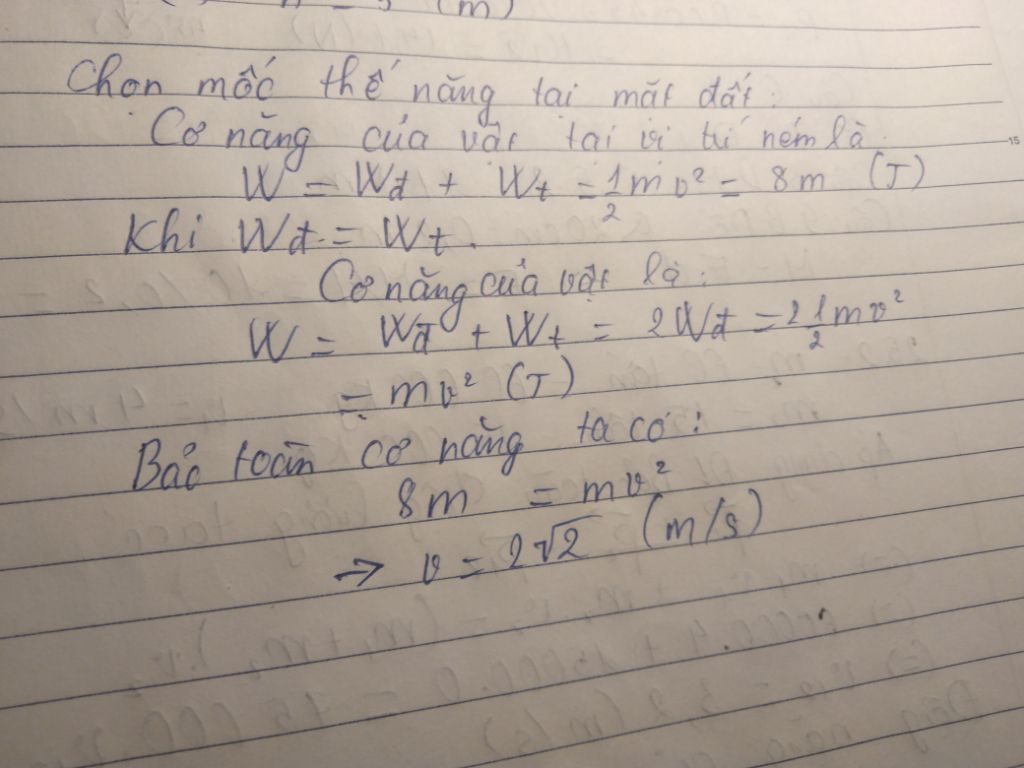 (m)
Chọn mốc thế năng tại mặt đất:
Cơ năng của vật tại vị trí ném là:
W = Wđ + Wt = 1/2 mv² = 8m (J)
Khi Wđ = Wt.
Cơ năng của vật là:
W = Wđ + Wt = 2Wđ = 2 1/2 mv²
= mv² (J)
Bảo toàn cơ năng ta có:
8m = mv²
→ v = 2√2 (m/s)
15